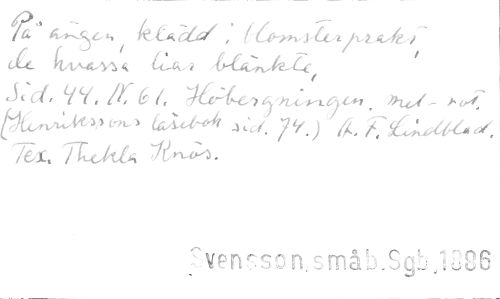 På ängen, klädd i blomsterprakt,
de hvassa liar blänkte,
Sid. 44. N. 61. Höbergningen. mel-not.
(Henrikssons läsebok sid. 74.) A. F. Lindblad.
Tex. Thekla Knös.
Svensson, småb. Sgb, 1886